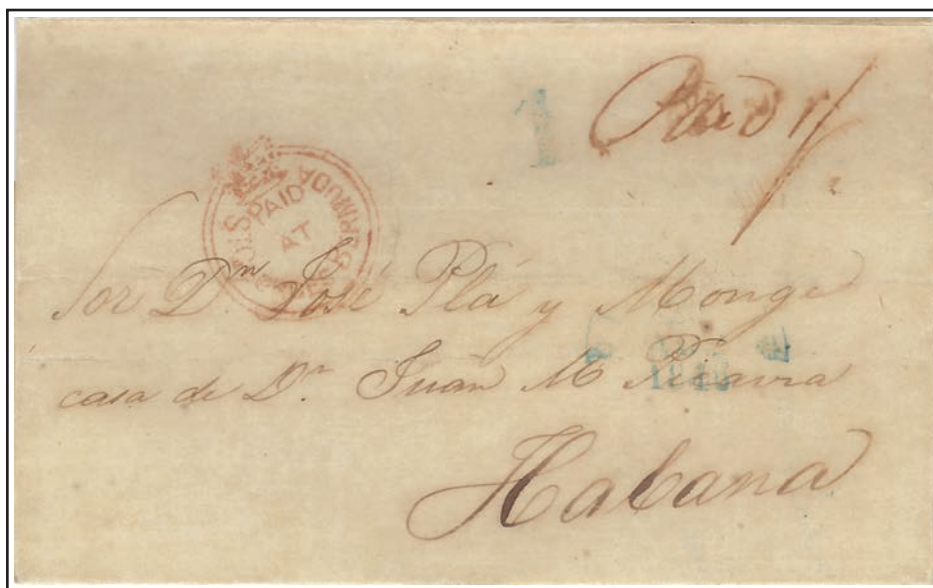 1 Paid 1/
PAID
AT
Sor Dn. José Plá y Monge
casa de Dn. Juan M
Habana